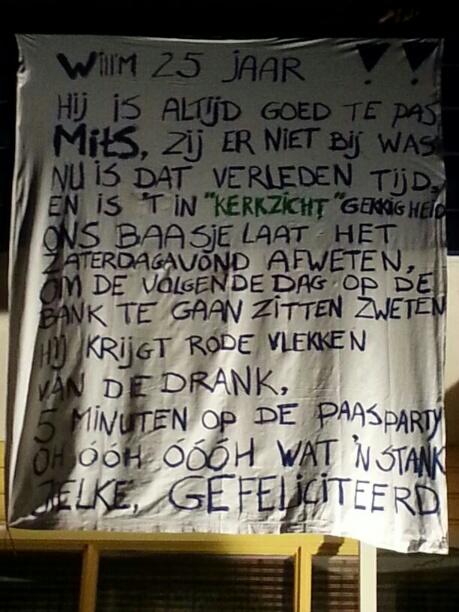 Will'M 25 JAAR !!
HIJ IS ALTIJD GOED TE PAS
MITS, ZIJ ER NIET BIJ WAS
NU IS DAT VERLEDEN TIJD,
EN IS 'T IN "KERKZICHT" GEKKIGHEID
ONS BAASJE LAAT HET
ZATERDAGAVOND AFWETEN,
OM DE VOLGENDE DAG OP DE
BANK TE GAAN ZITTEN ZWETEN
HIJ KRIJGT RODE VLEKKEN
VAN DE DRANK,
5 MINUTEN OP DE PAASPARTY
OH ÓÓH ÓÓÓH WAT 'N STANK
JELKE, GEFELICITEERD